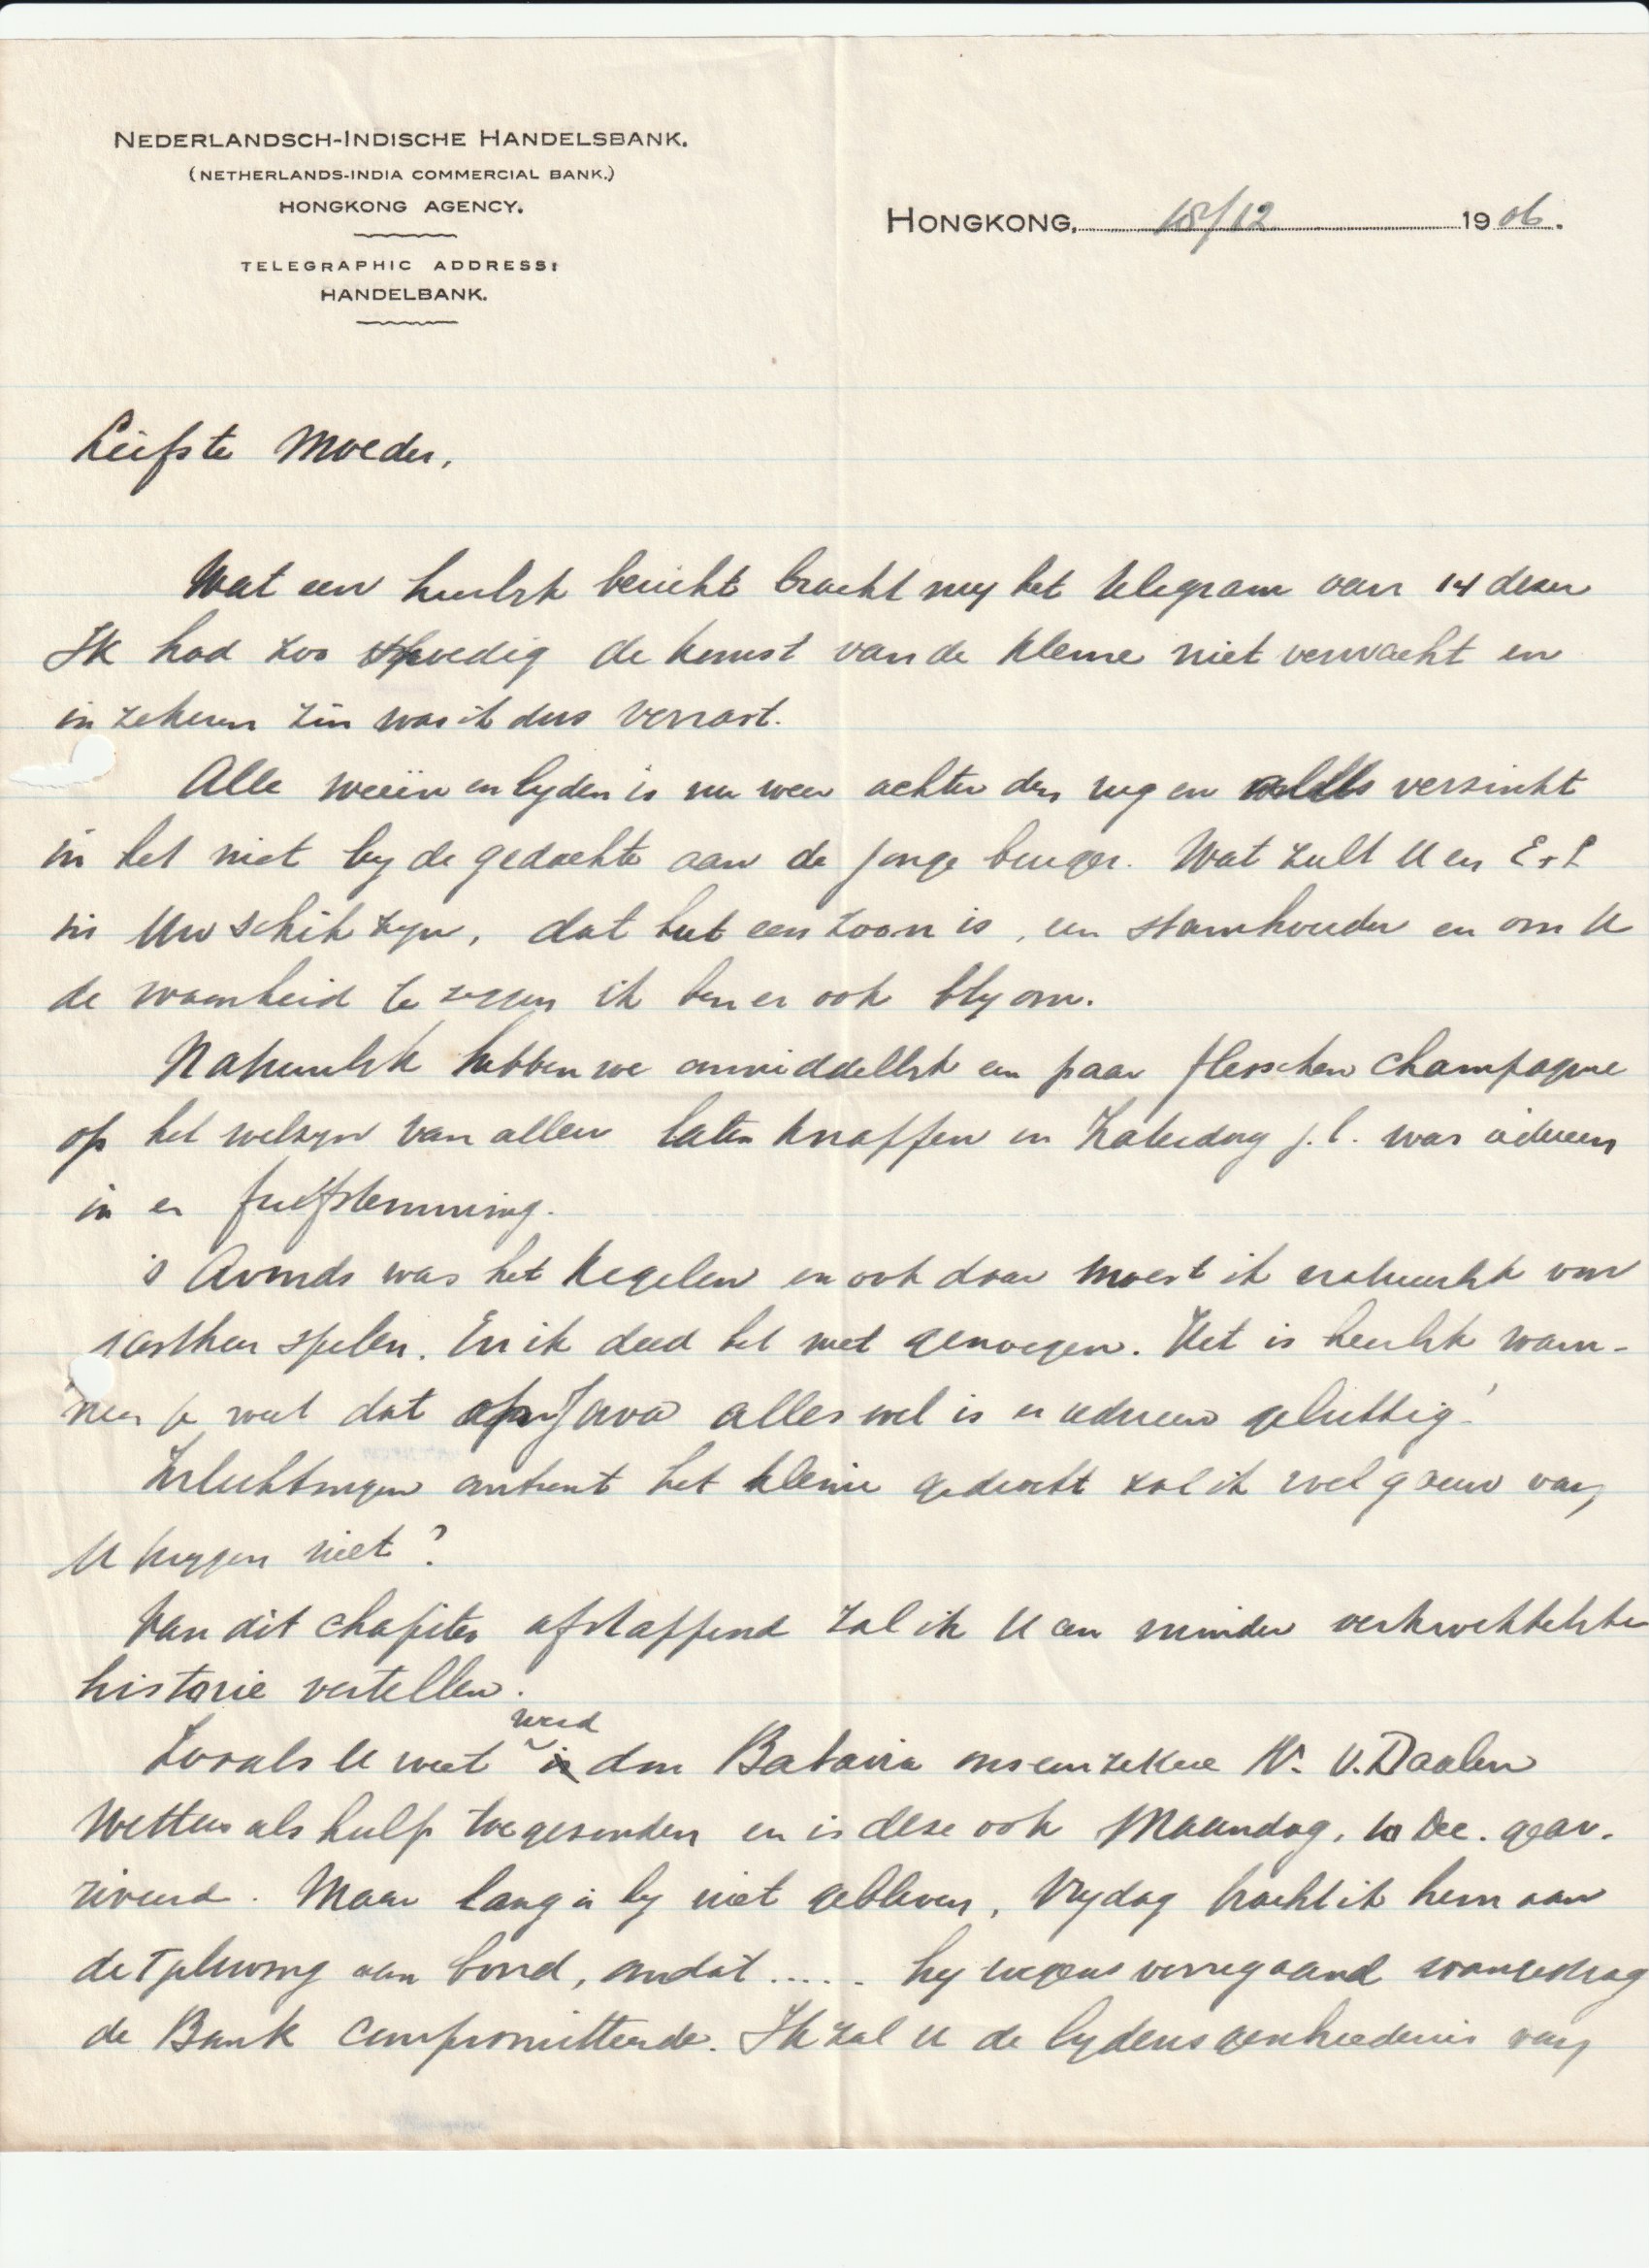 NEDERLANDSCH-INDISCHE HANDELSBANK.
(NETHERLANDS-INDIA COMMERCIAL BANK.)
HONGKONG AGENCY.
TELEGRAPHIC ADDRESS:
HANDELBANK.
HONGKONG, 18/12 1906.
Liefste Moeder,
Wat een heerlijk bericht bracht mij het telegram van 14 dezer
Ik had zoo spoedig de komst van de kleine niet verwacht en
in zekeren zin was ik dus verrast.
Alle weeën en lijden is nu weer achter den rug en alles verzinkt
in het niet bij de gedachte aan de jonge burger. Wat zult U en E + L
in Uw schik zijn, dat het een zoon is, een stamhouder en om U
de waarheid te zeggen ik ben er ook blij om.
Natuurlijk hebben we onmiddellijk een paar flesschen champagne
op het welzijn van allen laten knaffen en Zaterdag j.l. was iedereen
in en fuifstemming.
's Avonds was het kegelen en ook daar moest ik natuurlijk voor
gastheer spelen. En ik deed het met genoegen. Het is heerlijk wan-
neer je weet dat op Java alles wel is en iedereen gelukkig!
Inlichtingen omtrent het kleine gedrocht zal ik wel gauw van
U krijgen niet?
Van dit chapiter afstappend zal ik U een minder verkwikkelijke
historie vertellen.
Zooals U weet werd door Batavia ons een zekere W. v. Daalen
Wettens als hulp toegezonden en is deze ook Maandag, 10 Dec. gear-
riveerd. Maar lang is hij niet gebleven, Vrijdag bracht ik hem aan
de Tjiliwong aan boord, omdat ..... hij wegens verregaand wangedrag
de Bank compromitteerde. Ik zal U de lijdensgeschiedenis van